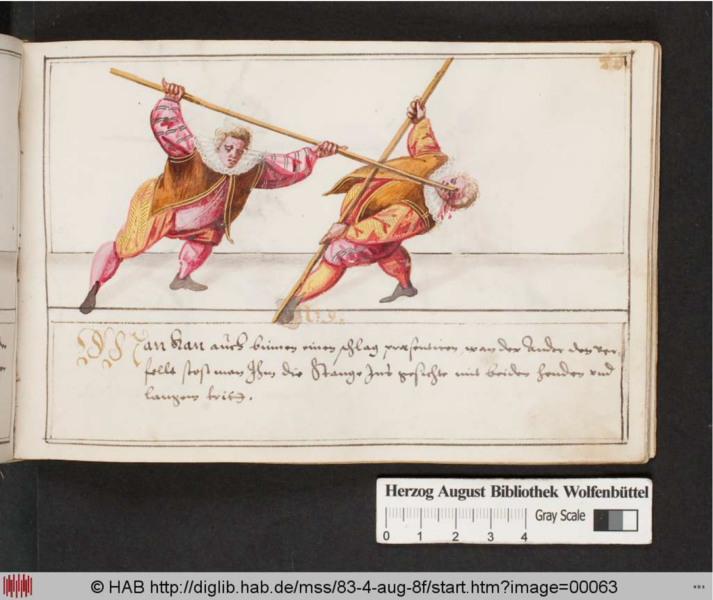 Man kan auch binnen einen schlag præsentiren, wan der Ander den ver-
felt stost man Ihm die Stange Ins gesichte mit beiden henden und
langem trit.
Herzog August Bibliothek Wolfenbüttel
Gray Scale
0 1 2 3 4
© HAB http://diglib.hab.de/mss/83-4-aug-8f/start.htm?image=00063